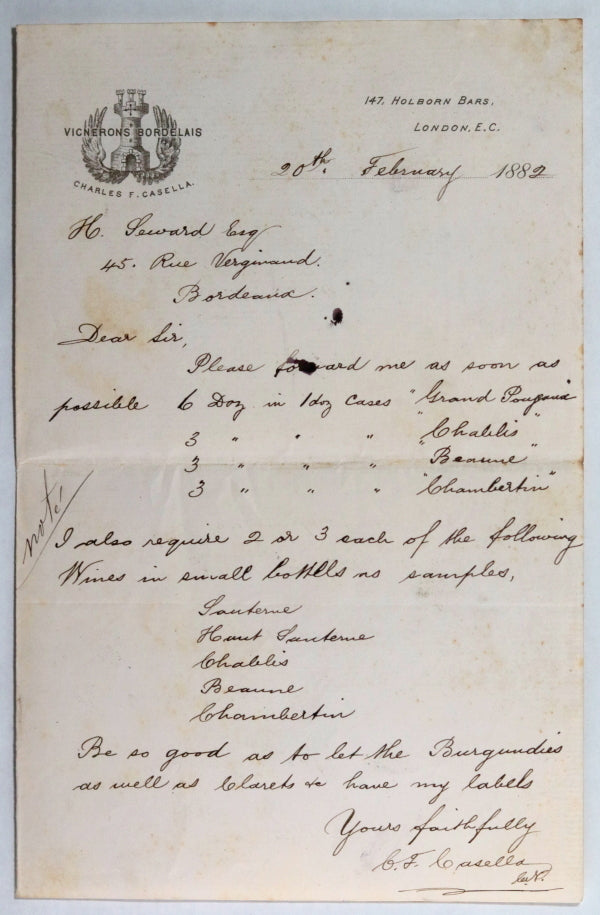 VIGNERONS BORDELAIS
CHARLES F. CASELLA.
147, HOLBORN BARS,
LONDON, E.C.
20th. February 1882
H. Seward Esq
45. Rue Verginiaud.
Bordeaux.
Dear Sir,
Please forward me as soon as
possible 6 Doz in 1 doz cases "Grand Poujeaux"
3 " " " "Chablis"
3 " " " "Beaune"
3 " " " "Chambertin"
noté
I also require 2 or 3 each of the following
Wines in small bottles as samples,
Sauterne
Haut Sauterne
Chablis
Beaune
Chambertin
Be so good as to let the Burgundies
as well as Clarets &c have my labels
Yours faithfully
C. F. Casella